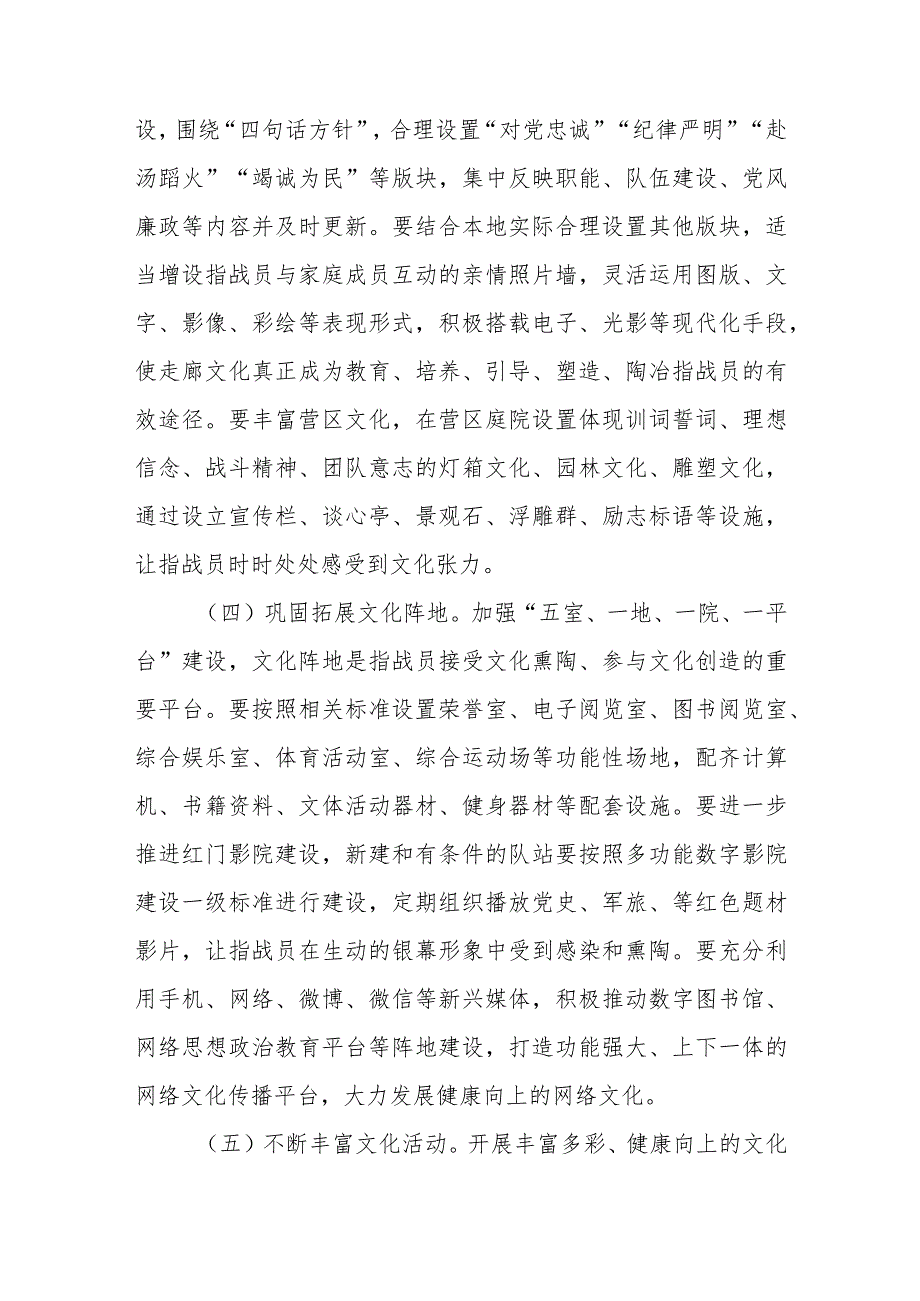 设，围绕“四句话方针”，合理设置“对党忠诚”“纪律严明”“赴
汤蹈火”“竭诚为民”等版块，集中反映职能、队伍建设、党风
廉政等内容并及时更新。要结合本地实际合理设置其他版块，适
当增设指战员与家庭成员互动的亲情照片墙，灵活运用图版、文
字、影像、彩绘等表现形式，积极搭载电子、光影等现代化手段，
使走廊文化真正成为教育、培养、引导、塑造、陶冶指战员的有
效途径。要丰富营区文化，在营区庭院设置体现训词誓词、理想
信念、战斗精神、团队意志的灯箱文化、园林文化、雕塑文化，
通过设立宣传栏、谈心亭、景观石、浮雕群、励志标语等设施，
让指战员时时处处感受到文化张力。
（四）巩固拓展文化阵地。加强“五室、一地、一院、一平
台”建设，文化阵地是指战员接受文化熏陶、参与文化创造的重
要平台。要按照相关标准设置荣誉室、电子阅览室、图书阅览室、
综合娱乐室、体育活动室、综合运动场等功能性场地，配齐计算
机、书籍资料、文体活动器材、健身器材等配套设施。要进一步
推进红门影院建设，新建和有条件的队站要按照多功能数字影院
建设一级标准进行建设，定期组织播放党史、军旅、等红色题材
影片，让指战员在生动的银幕形象中受到感染和熏陶。要充分利
用手机、网络、微博、微信等新兴媒体，积极推动数字图书馆、
网络思想政治教育平台等阵地建设，打造功能强大、上下一体的
网络文化传播平台，大力发展健康向上的网络文化。
（五）不断丰富文化活动。开展丰富多彩、健康向上的文化